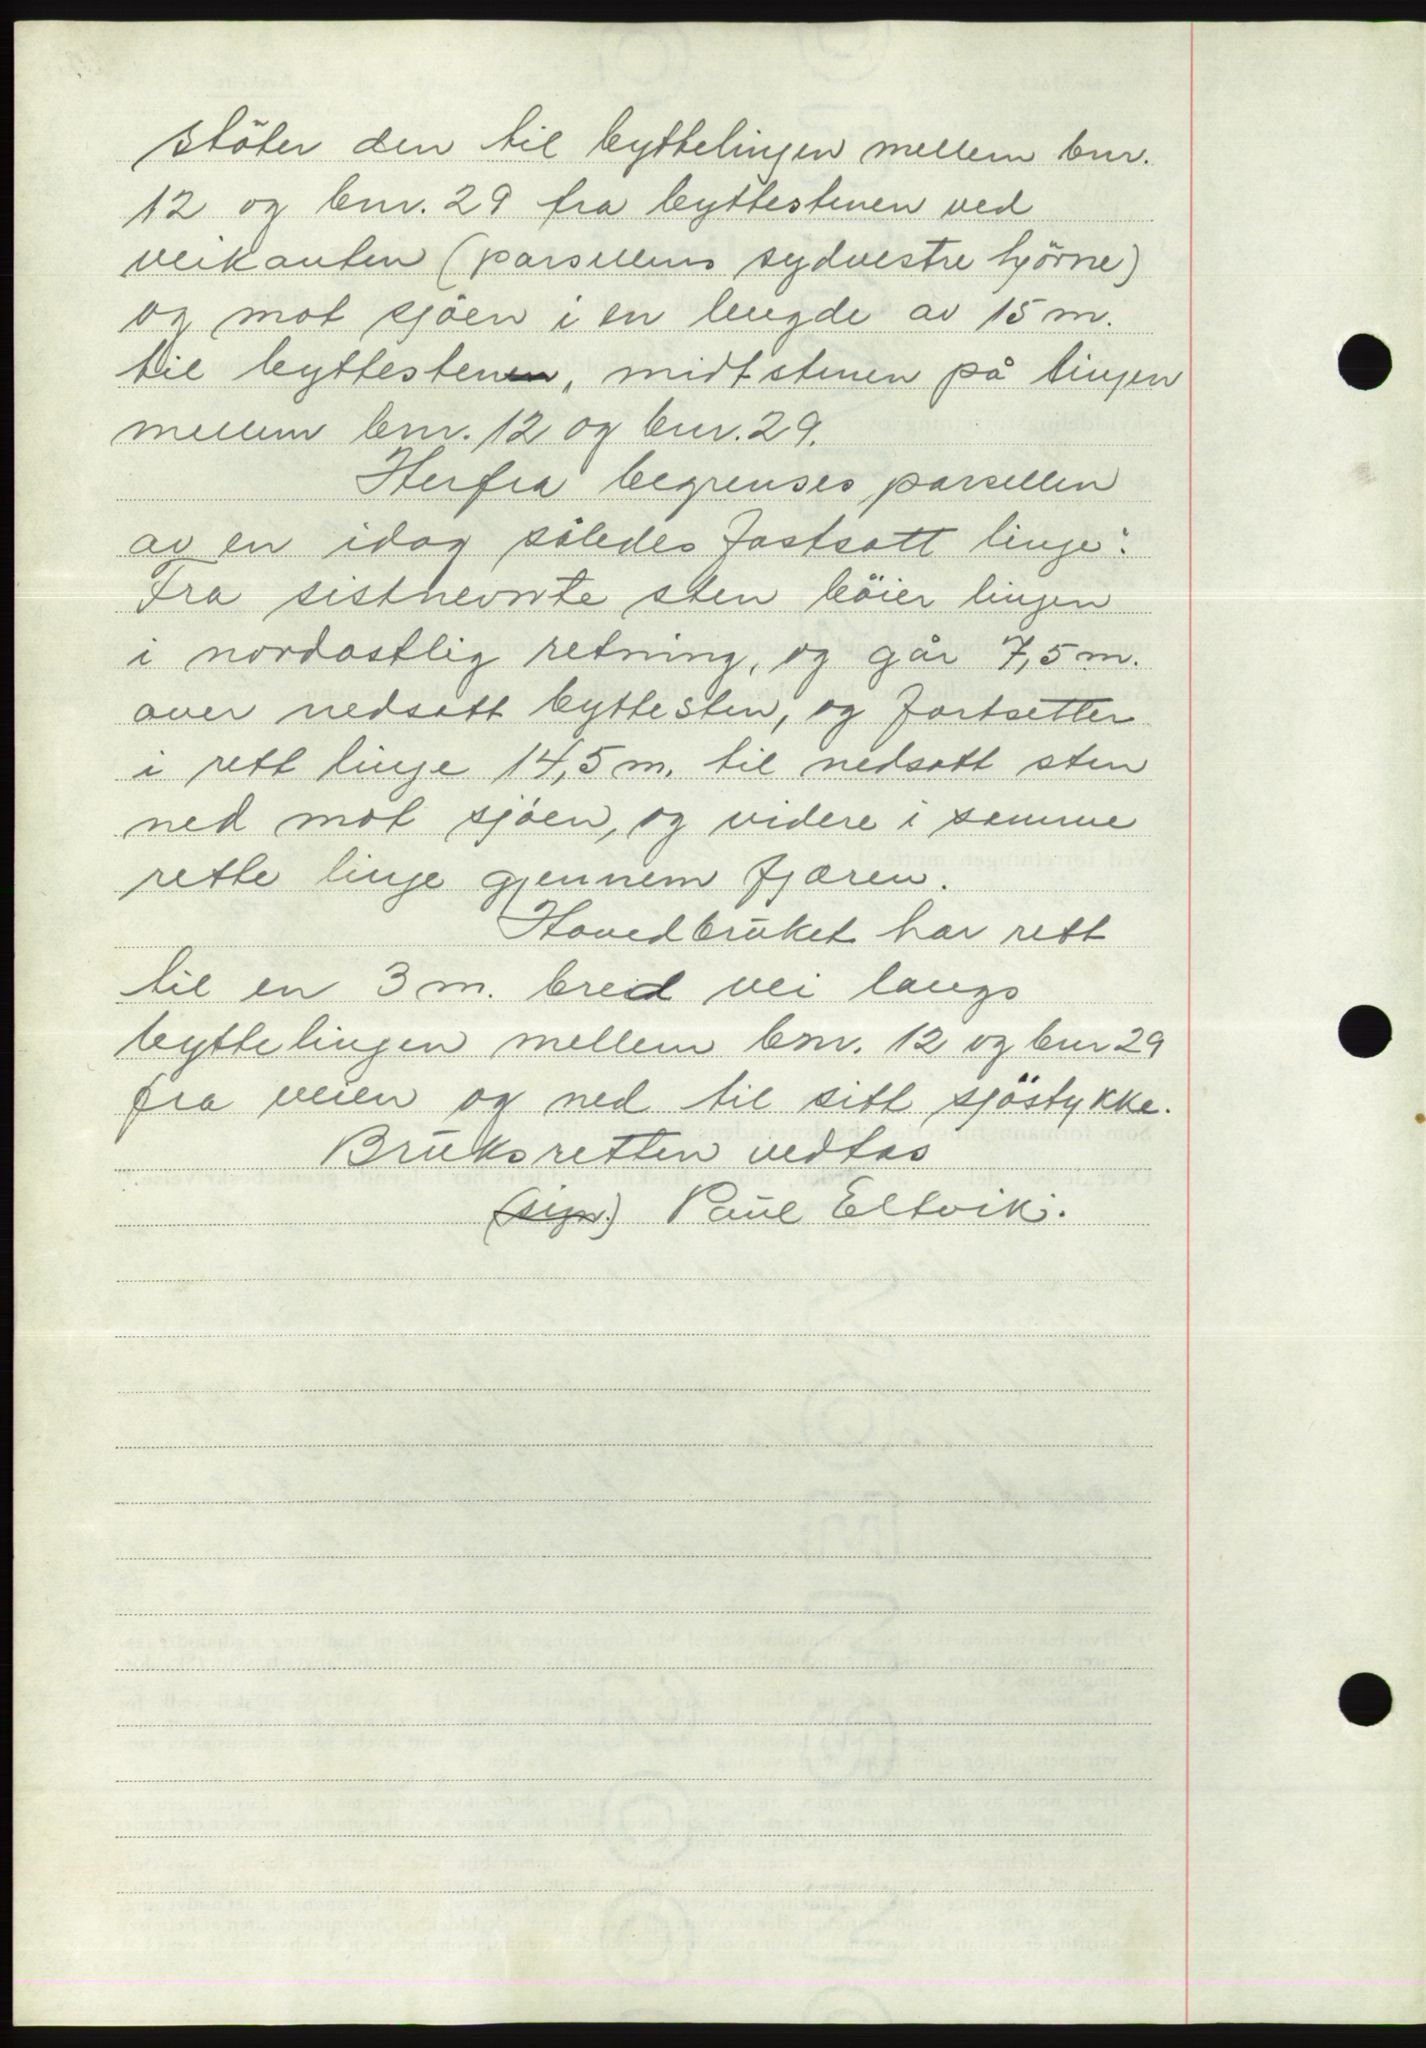 stöter den til byttelinjen mellem bnr.
12 og bnr. 29 fra byttestenen ved
veikanten (parsellens sydvestre hjörne)
og mot sjöen i en lengde av 15 m.
til byttesten, midtstenen på linjen
mellem bnr. 12 og bnr. 29.
Herfra begrenses parsellen
av en idag således fastsatt linje:
Fra sistnevnte sten böier linjen
i nordostlig retning, og går 7,5 m.
over nedsatt byttesten, og fortsetter
i rett linje 14,5 m. til nedsatt sten
ned mot sjöen, og videre i samme
rette linje gjennem fjæren.
Hovedbruket har rett
til en 3 m. bred vei langs
byttelinjen mellem bnr. 12 og bnr 29
fra veien og ned til sitt sjöstykke.
Bruksretten vedtas
(sign.) Paul Eltvik.